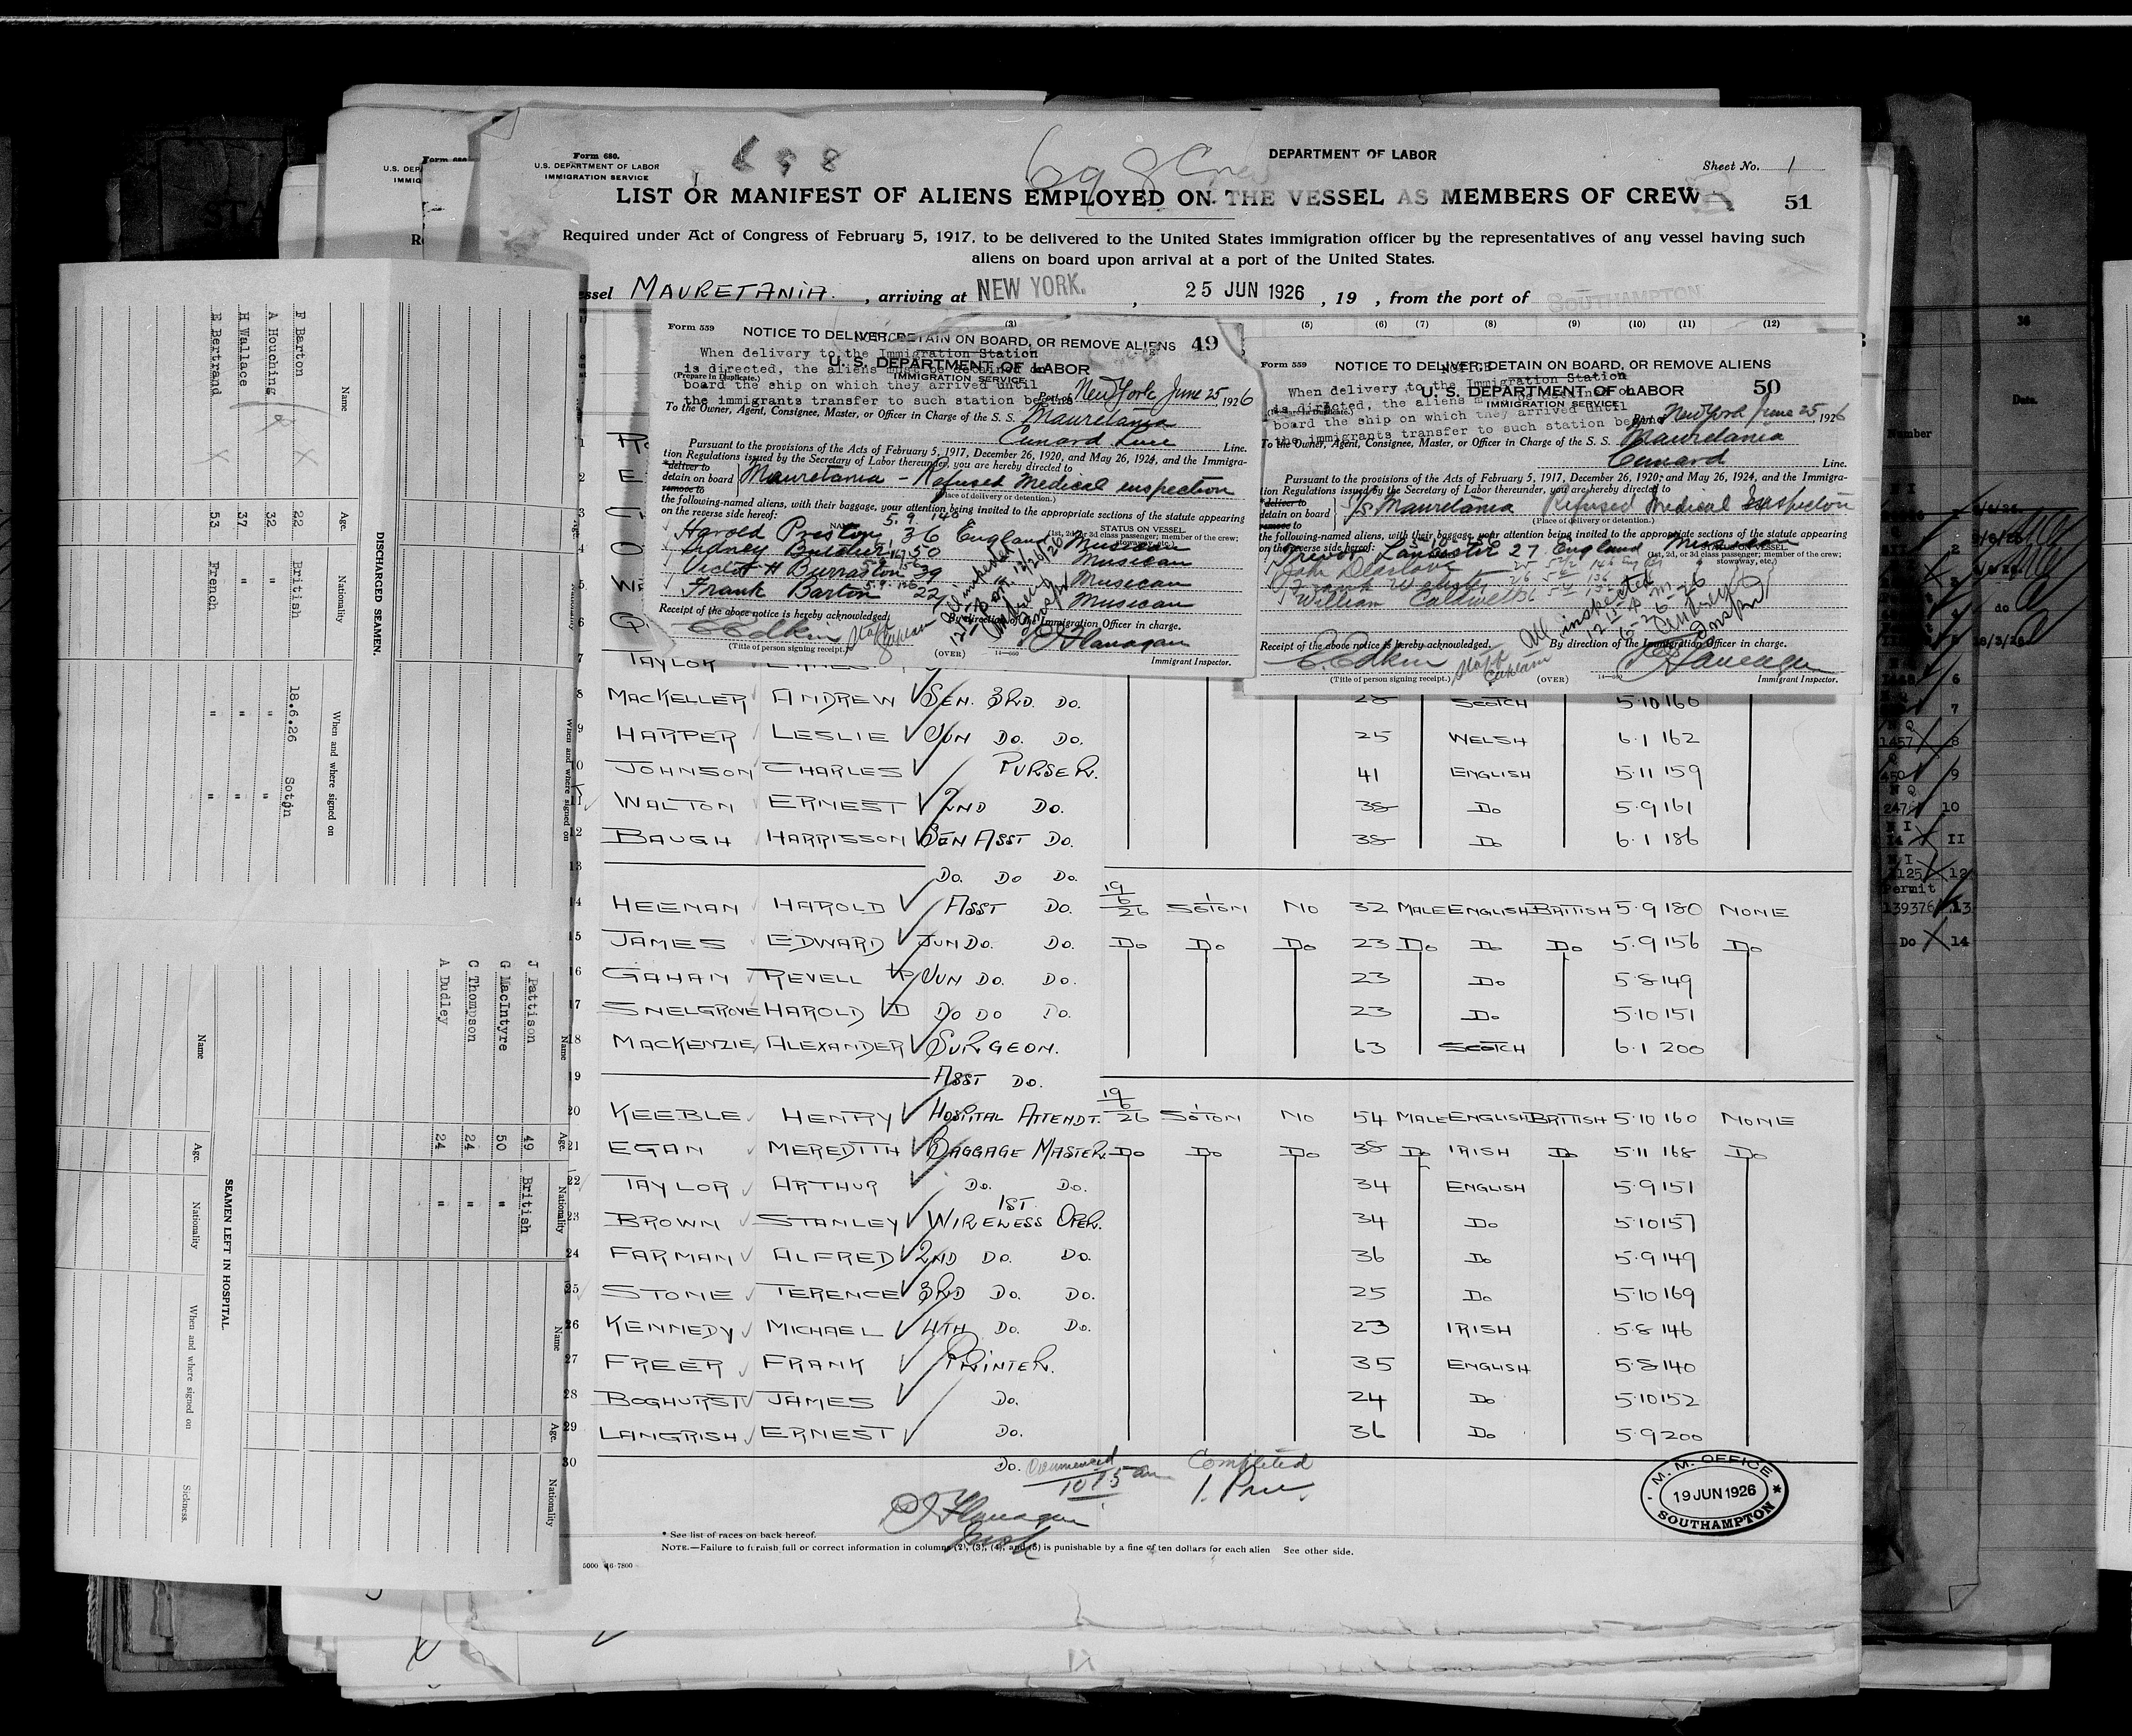 Form 680.
U.S. DEPARTMENT OF LABOR
IMMIGRATION SERVICE
698
698 Crew
DEPARTMENT OF LABOR
Sheet No. 1
LIST OR MANIFEST OF ALIENS EMPLOYED ON THE VESSEL AS MEMBERS OF CREW
51
Required under Act of Congress of February 5, 1917, to be delivered to the United States immigration officer by the representatives of any vessel having such
aliens on board upon arrival at a port of the United States.
essel MAURETANIA. , arriving at NEW YORK. , 25 JUN 1926 , 19 , from the port of SOUTHAMPTON
(3) (5) (6) (7) (8) (9) (10) (11) (12)
Form 559
NOTICE TO DELIVER, DETAIN ON BOARD, OR REMOVE ALIENS 49
When delivery to the Immigration Station
U. S. DEPARTMENT OF LABOR
is directed, the aliens
(Prepare in Duplicate.)
IMMIGRATION SERVICE
board the ship on which they arrived until
the immigrants transfer to such station
Port of New York June 25, 1926
To the Owner, Agent, Consignee, Master, or Officer in Charge of the S. S. Mauretania
Cunard Line Line.
Pursuant to the provisions of the Acts of February 5, 1917, December 26, 1920, and May 26, 1924, and the Immigra-
tion Regulations issued by the Secretary of Labor thereunder, you are hereby directed to
*deliver to
detain on board Mauretania - Refused Medical inspection
remove to
(Place of delivery or detention.)
the following-named aliens, with their baggage, your attention being invited to the appropriate sections of the statute appearing
on the reverse side hereof:
NAME
5.9 140
STATUS ON VESSEL
(1st, 2d, or 3d class passenger; member of the crew; stowaway, etc.)
Harold Preston 36 England Musican
Sidney Butcher 50 Musican
Victor H Burraston 39 Musican
Frank Barton 22 Musican
All inspected
Receipt of the above notice is hereby acknowledged.
By direction of the Immigration Officer in charge.
E Edkin Staff Captain
(Title of person signing receipt.)
(OVER)
14-560
Flanagan
Immigrant Inspector.
Form 559
NOTICE TO DELIVER, DETAIN ON BOARD, OR REMOVE ALIENS
When delivery to the Immigration Station
U. S. DEPARTMENT OF LABOR 50
is directed, the aliens
IMMIGRATION SERVICE
board the ship on which they arrived until
the immigrants transfer to such station
New York June 25, 1926
To the Owner, Agent, Consignee, Master, or Officer in Charge of the S. S. Mauretania
Cunard Line.
Pursuant to the provisions of the Acts of February 5, 1917, December 26, 1920, and May 26, 1924, and the Immigra-
tion Regulations issued by the Secretary of Labor thereunder, you are hereby directed to
*deliver to
detain on board S/S Mauretania Refused Medical Inspection
remove to
(Place of delivery or detention.)
the following-named aliens, with their baggage, your attention being invited to the appropriate sections of the statute appearing
on the reverse side hereof:
STATUS ON VESSEL
(1st, 2d, or 3d class passenger; member of the crew; stowaway, etc.)
Trevor Lancaster 27 England Musician
William Caldwell
All inspected
Receipt of the above notice is hereby acknowledged.
By direction of the Immigration Officer in charge.
E. Edkin Staff Captain
(Title of person signing receipt.)
(OVER)
14-560
Flanagan
Immigrant Inspector.
7 TAYLOR
8 MACKELLER ANDREW SEN. 3RD. DO. 28 SCOTCH 5·10 160
9 HARPER LESLIE JUN DO. DO. 25 WELSH 6·1 162
10 JOHNSON CHARLES PURSER. 41 ENGLISH 5·11 159
11 WALTON ERNEST 2ND DO. 38 DO 5·9 161
12 BAUGH HARRISSON SEN ASST DO. 38 DO 6·1 186
13 DO. DO DO.
14 HEENAN HAROLD ASST DO. 19/6/26 SOTON NO 32 MALE ENGLISH BRITISH 5·9 180 NONE
15 JAMES EDWARD JUN DO. DO. DO DO DO 23 DO DO DO 5·9 156 DO
16 GAHAN REVELL JUN DO. DO. 23 DO 5·8 149
17 SNELGROVE HAROLD DO DO DO. 23 DO 5·10 151
18 MACKENZIE ALEXANDER SURGEON. 63 SCOTCH 6·1 200
19 ASST DO.
20 KEEBLE HENRY HOSPITAL ATTENDT. 19/6/26 SOTON NO 54 MALE ENGLISH BRITISH 5·10 160 NONE
21 EGAN MEREDITH BAGGAGE MASTER. DO DO DO 38 DO IRISH DO 5·11 168 DO
22 TAYLOR ARTHUR DO. DO. 34 ENGLISH 5·9 151
23 BROWN STANLEY 1ST WIRELESS OPER. 34 DO 5·10 157
24 FARMAN ALFRED 2ND DO. DO. 36 DO 5·9 149
25 STONE TERENCE 3RD DO. DO. 25 DO 5·10 169
26 KENNEDY MICHAEL 4TH DO. DO. 23 IRISH 5·8 146
27 FREER FRANK PRINTER. 35 ENGLISH 5·8 140
28 BOGHURST JAMES DO. 24 DO 5·10 152
29 LANGRISH ERNEST DO. 36 DO 5·9 200
30 DO.
Commenced 10 15 am
Completed 1. P.m.
Flanagan
Insp
M. M. OFFICE
19 JUN 1926
SOUTHAMPTON
* See list of races on back hereof.
NOTE.—Failure to furnish full or correct information in columns (2), (3), (4), and (5) is punishable by a fine of ten dollars for each alien See other side.
DISCHARGED SEAMEN.
Name Age. Nationality When and where signed on
F Barton 22 British 18.6.26 Soton
A Houching 32 " " "
H Wallace 37 " " "
E Bertrand 53 French " "
Name Age. Nationality When and where signed on
J Pattison 49 British
G MacIntyre 50 "
C Thompson 24 "
A Dudley 24 "
SEAMEN LEFT IN HOSPITAL.
Name Age. Nationality When and where signed on Sickness.
Name Age. Nationality
Number
Date.
6
7
1457 8
450 9
247 10
14 11
1125 12
Permit
139376 13
Do 14